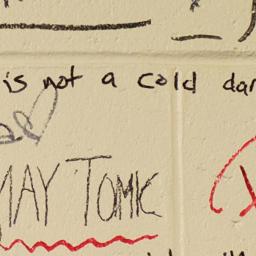 is not a cold dar
MAY TOMIC